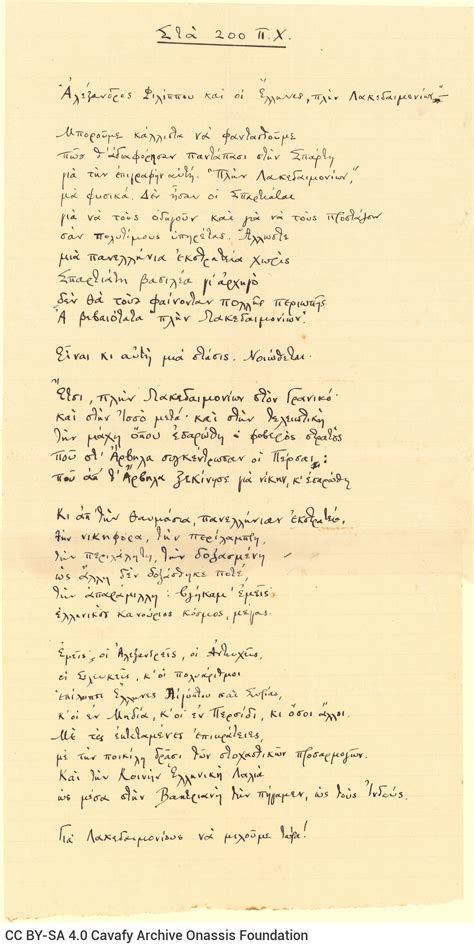 Στὰ 200 π.Χ.
«Ἀλέξανδρος Φιλίππου καὶ οἱ Ἕλληνες, πλὴν Λακεδαιμονίων—»
Μποροῦμε κάλλιστα νὰ φαντασθοῦμε
πῶς θ' ἀδιαφόρησαν παντάπασι στὴν Σπάρτη
γιὰ τὴν ἐπιγραφὴν αὐτή. «Πλὴν Λακεδαιμονίων»,
μὰ φυσικά. Δὲν ἦσαν οἱ Σπαρτιᾶται
γιὰ νὰ τοὺς ὁδηγοῦν καὶ γιὰ νὰ τοὺς προστάζουν
σὰν πολυτίμους ὑπηρέτας. Ἄλλωστε
μιὰ πανελλήνια ἐκστρατεία χωρὶς
Σπαρτιάτη βασιλέα γι' ἀρχηγὸ
δὲν θὰ τοὺς φαίνονταν πολλῆς περιωπῆς.
Ἆ βεβαιότατα «πλὴν Λακεδαιμονίων».
Εἶναι κι αὐτὴ μιὰ στάσις. Νοιώθεται.
Ἔτσι, πλὴν Λακεδαιμονίων στὸν Γρανικό·
καὶ στὴν Ἰσσὸ μετά· καὶ στὴν τελειωτικὴ
τὴν μάχη, ὅπου ἐσαρώθη ὁ φοβερὸς στρατὸς
ποὺ στ' Ἄρβηλα συγκέντρωσαν οἱ Πέρσαι:
ποὺ ἀπ' τ' Ἄρβηλα ξεκίνησε γιὰ νίκην, κ' ἐσαρώθη.
Κι ἀπ' τὴν θαυμάσια πανελλήνιαν ἐκστρατεία,
τὴν νικηφόρα, τὴν περίλαμπρη,
τὴν περιλάλητη, τὴν δοξασμένη
ὡς ἄλλη δὲν δοξάσθηκε ποτέ,
τὴν ἀπαράμιλλη: βγήκαμ' ἐμεῖς·
ἑλληνικὸς καινούριος κόσμος, μέγας.
Ἐμεῖς· οἱ Ἀλεξανδρεῖς, οἱ Ἀντιοχεῖς,
οἱ Σελευκεῖς, κ' οἱ πολυάριθμοι
ἐπίλοιποι Ἕλληνες Αἰγύπτου καὶ Συρίας,
κ' οἱ ἐν Μηδίᾳ, κ' οἱ ἐν Περσίδι, κι ὅσοι ἄλλοι.
Μὲ τὲς ἐκτεταμένες ἐπικράτειες,
μὲ τὴν ποικίλη δρᾶσι τῶν στοχαστικῶν προσαρμογῶν.
Καὶ τὴν Κοινὴν Ἑλληνικὴ Λαλιὰ
ὡς μέσα στὴν Βακτριανὴ τὴν πήγαμεν, ὡς τοὺς Ἰνδούς.
Γιὰ Λακεδαιμονίους νὰ μιλοῦμε τώρα!
CC BY-SA 4.0 Cavafy Archive Onassis Foundation